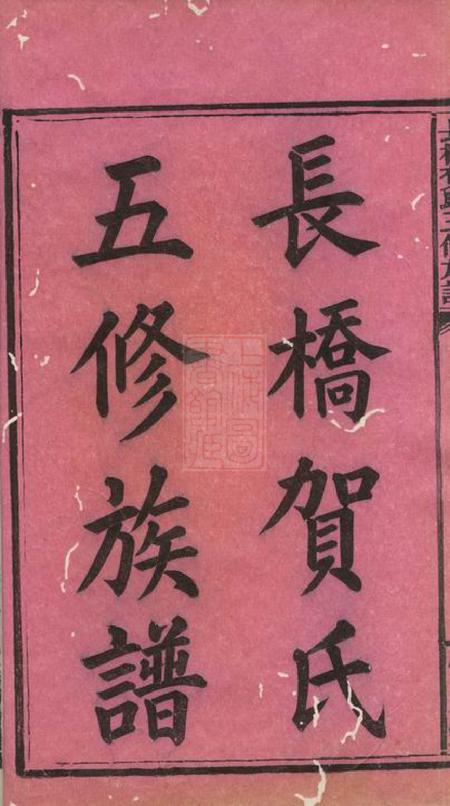 長橋賀氏
五修族譜